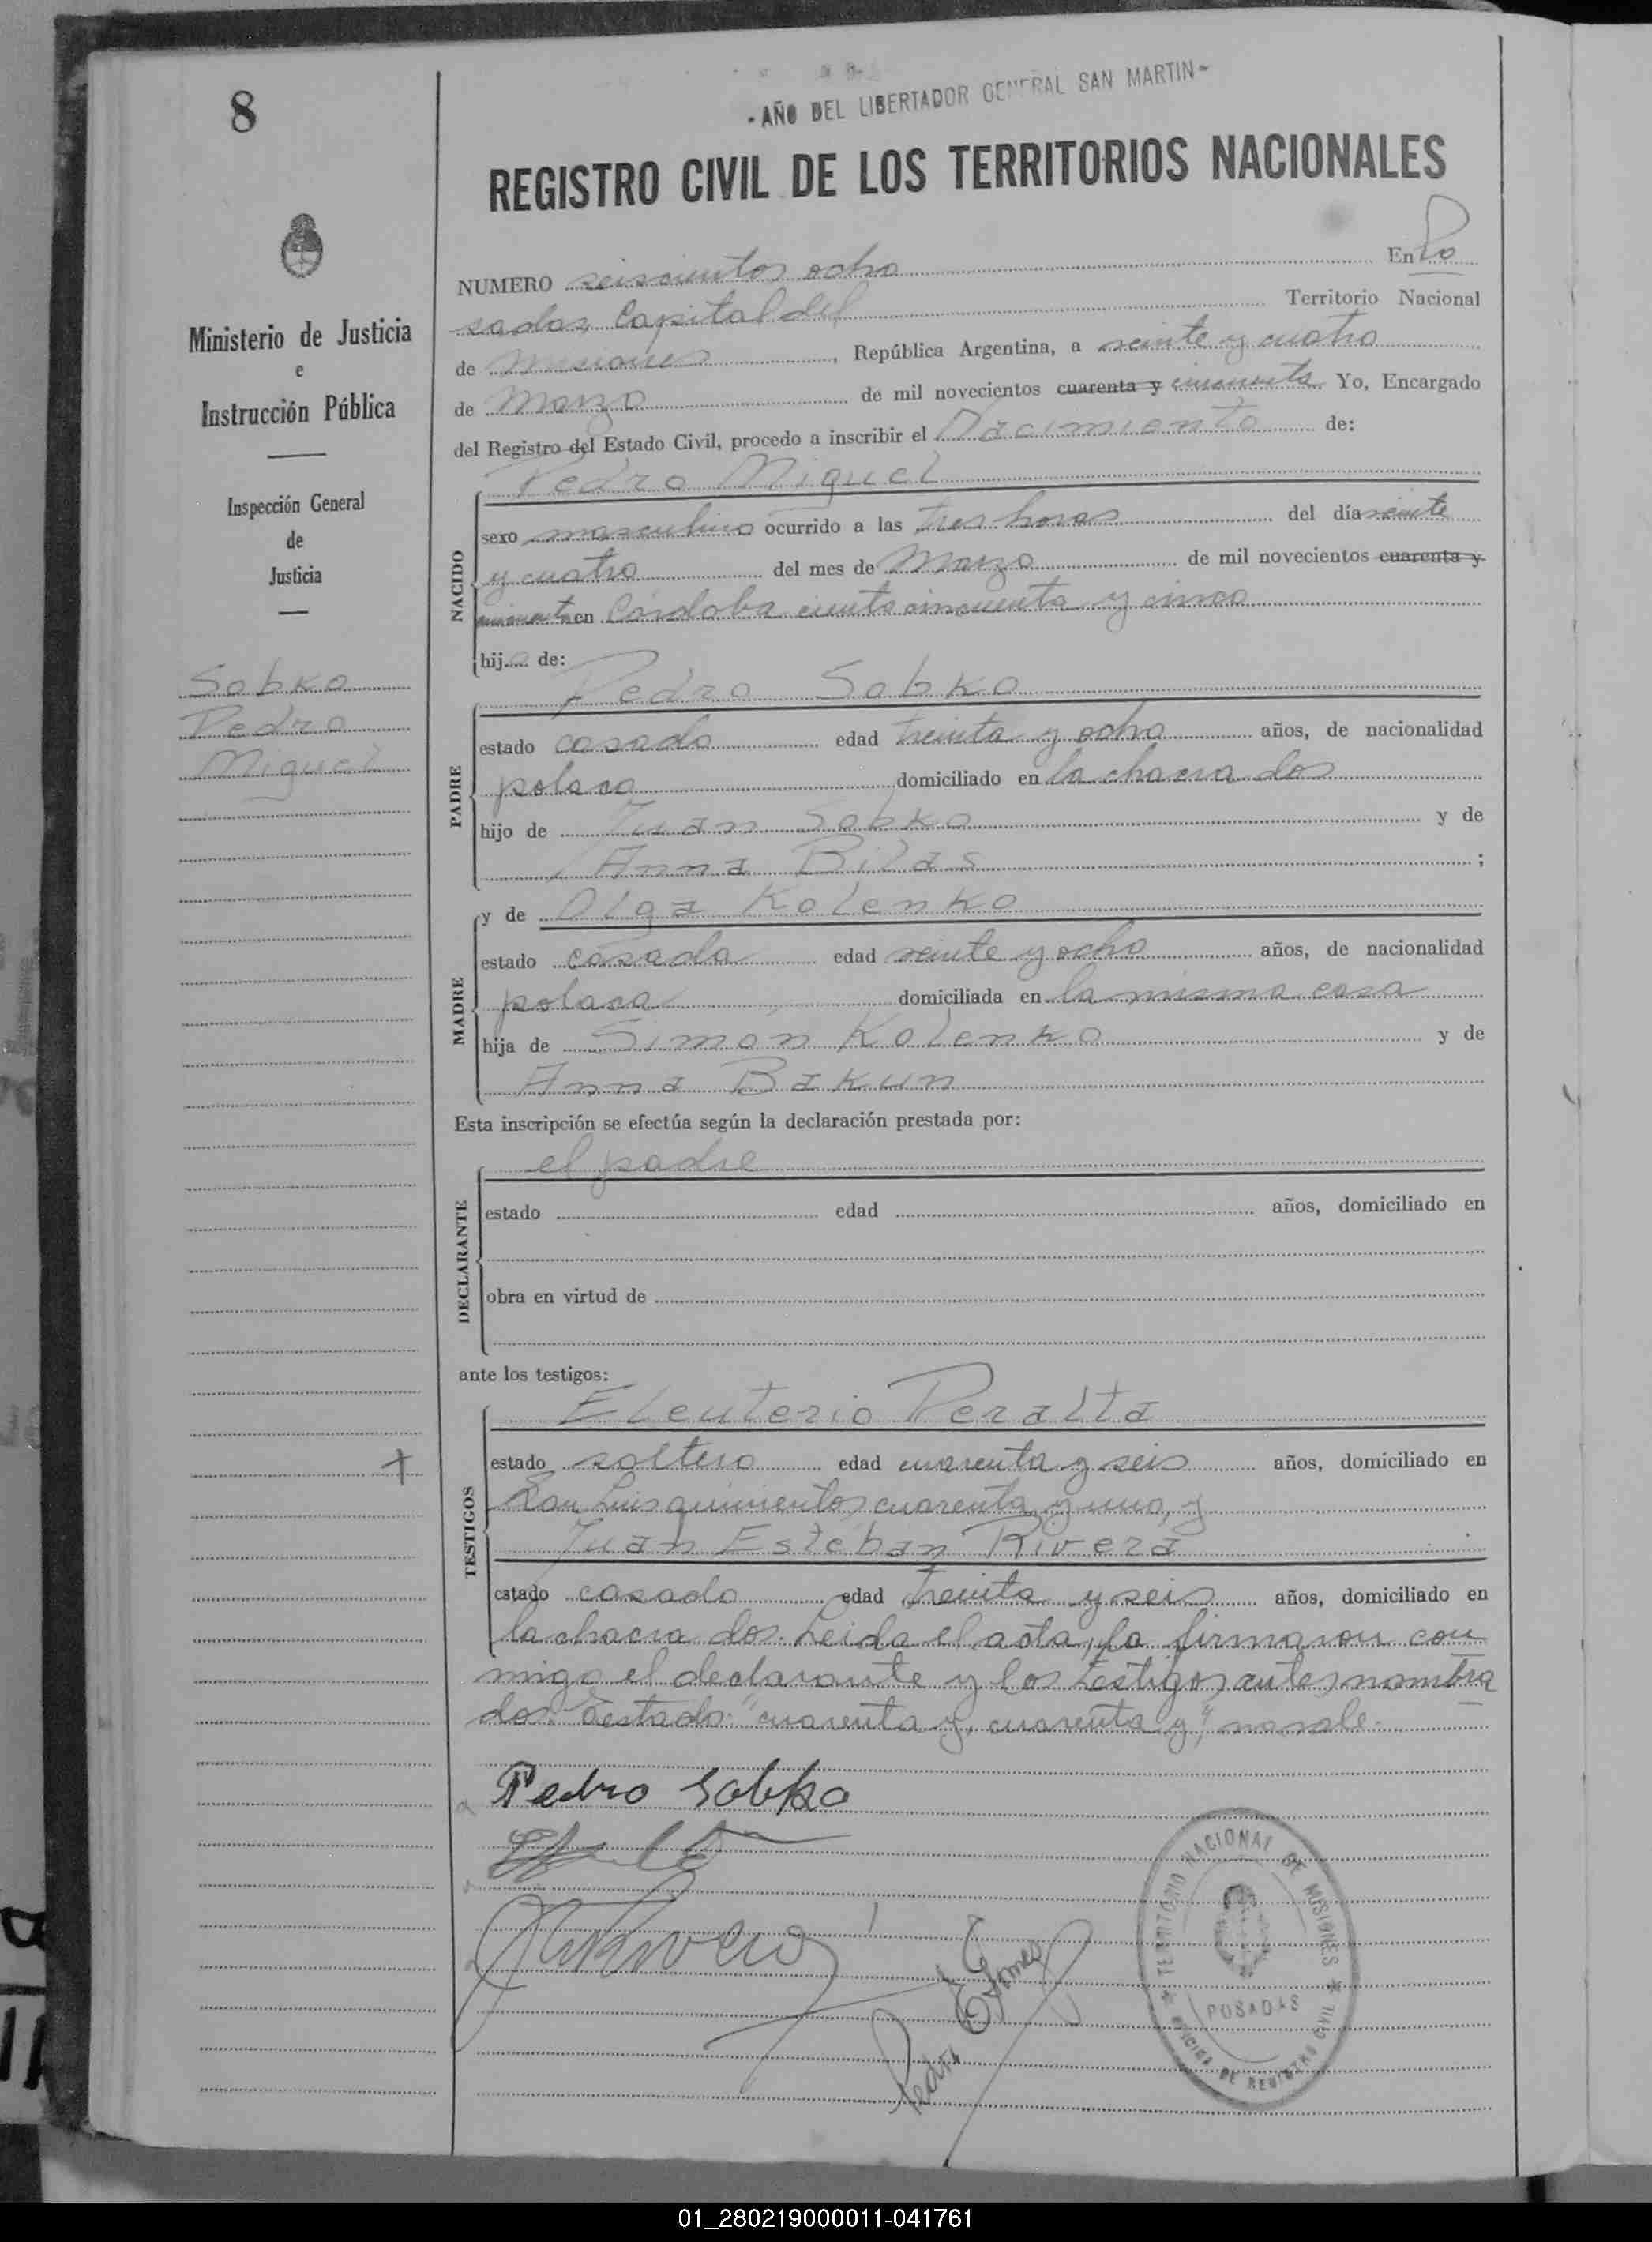 8
- AÑO DEL LIBERTADOR GENERAL SAN MARTIN -
REGISTRO CIVIL DE LOS TERRITORIOS NACIONALES
Ministerio de Justicia
e
Instrucción Pública
Inspección General
de
Justicia
Sobko
Pedro
Miguel
NUMERO seiscientos ocho En Po
sadas, Capital del Territorio Nacional
de Misiones, República Argentina, a veinte y cuatro
de Marzo de mil novecientos cuarenta y cincuenta Yo, Encargado
del Registro del Estado Civil, procedo a inscribir el Nacimiento de:
Pedro Miguel
NACIDO
sexo masculino ocurrido a las tres horas del día veinte
y cuatro del mes de Marzo de mil novecientos cuarenta y
cincuenta en Córdoba ciento cincuenta y cinco
hijo de:
Pedro Sobko
PADRE
estado casado edad treinta y ocho años, de nacionalidad
polaca domiciliado en la chacra dos
hijo de Juan Sobko y de
Anna Bilas ;
y de Olga Kolenko
MADRE
estado casada edad veinte y ocho años, de nacionalidad
polaca domiciliada en la misma casa
hija de Simon Kolenko y de
Anna Bakun
Esta inscripción se efectúa según la declaración prestada por:
el padre
DECLARANTE
estado edad años, domiciliado en
obra en virtud de
ante los testigos:
Eleuterio Peralta
TESTIGOS
estado soltero edad cuarenta y seis años, domiciliado en
San Luis quinientos cuarenta y uno, y
Juan Esteban Rivera
estado casado edad treinta y seis años, domiciliado en
la chacra dos. Leida el acta, la firmaron con
migo el declarante y los testigos antes nombra
dos. Testado: "cuarenta y, cuarenta y", no vale.
Pedro Sobko
Pedro E Gomez
TERRITORIO NACIONAL DE MISIONES
POSADAS
OFICINA DE REGISTRO CIVIL
01_280219000011-041761